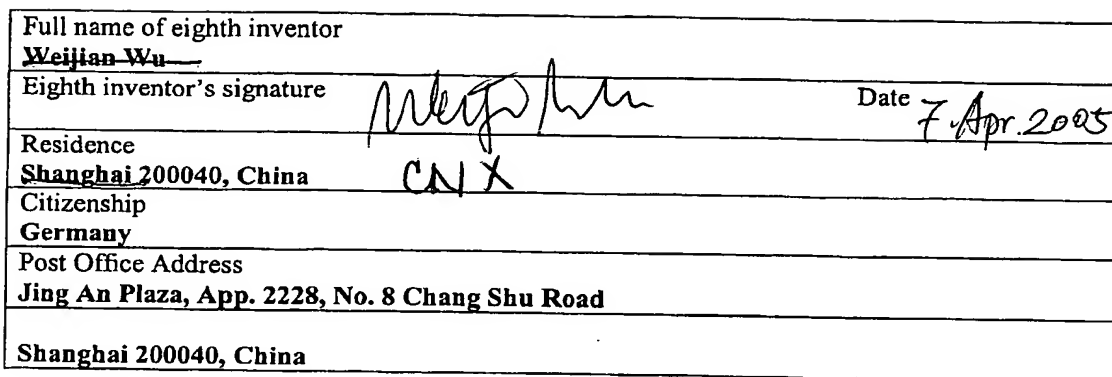 Full name of eighth inventor
Weijian Wu
Eighth inventor's signature Date 7. Apr. 2005
Residence
Shanghai 200040, China CNX
Citizenship
Germany
Post Office Address
Jing An Plaza, App. 2228, No. 8 Chang Shu Road
Shanghai 200040, China